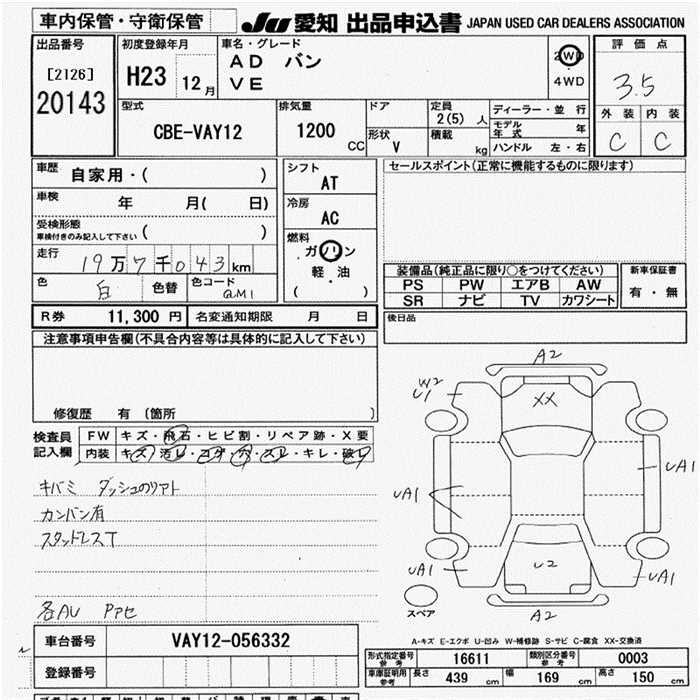 車内保管・守衛保管 JU 愛知 出品申込書 JAPAN USED CAR DEALERS ASSOCIATION
出品番号 初度登録年月 車名・グレード 評価点
[2126] H23 12月 AD バン 2WD 3.5
20143 VE 4WD
外装 内装
型式 排気量 ドア 定員 2(5) 人 ディーラー・並行 C C
CBE-VAY12 1200 CC 形状 V 積載 kg モデル年式 年
ハンドル 左・右
車歴 自家用・( ) シフト AT セールスポイント(正常に機能するものに限ります)
車検 年 月( 日) 冷房 AC
受検形態 ( )
車検付きのみ記入して下さい
燃料 ガソリン
走行 19万7千043km 軽・油
( )
色 白 色替 色コード QM1
装備品(純正品に限り○をつけてください) 新車保証書
PS PW エアB AW 有・無
SR ナビ TV カワシート
R券 11,300 円 名変通知期限 月 日 後日品
注意事項申告欄(不具合内容等は具体的に記入して下さい)
修復歴 有 (箇所 )
検査員 FW キズ・飛石・ヒビ割・リペア跡・X要
記入欄 内装 キズ・汚レ・コゲ・穴・スレ・キレ・破レ
キバミ ダッシュのリアト
カンバン有
スタッドレスT
各AU Pアセ
A2
W2
U1
XX
UA1
UA1
UA1
U2
UA1
スペア
A2
車台番号 VAY12-056332
登録番号
A-キズ E-エクボ U-凹み W-補修跡 S-サビ C-腐食 XX-交換済
形式指定番号 参考 16611 類別区分番号 参考 0003
車庫証明用 参考 長さ 439 cm 幅 169 cm 高さ 150 cm